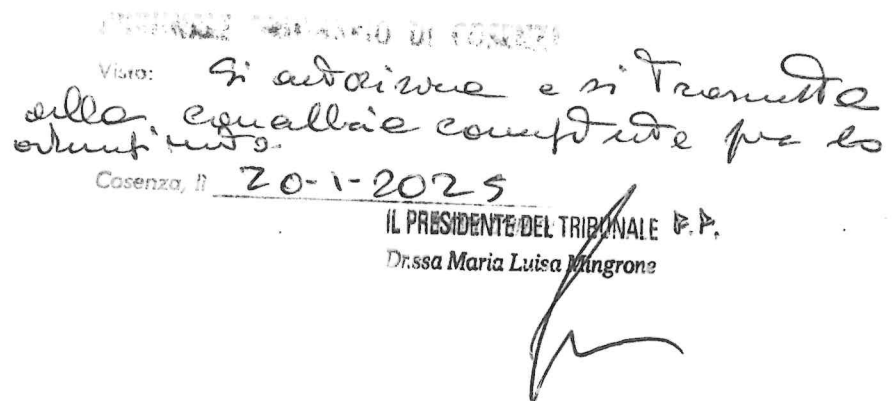 TRIBUNALE ORDINARIO DI COSENZA
Visto: Si autorizza e si trasmetta
alla cancelleria competente per lo
Cosenza, lì 20-1-2025
IL PRESIDENTE DEL TRIBUNALE F.F.
Dr.ssa Maria Luisa Mingrone